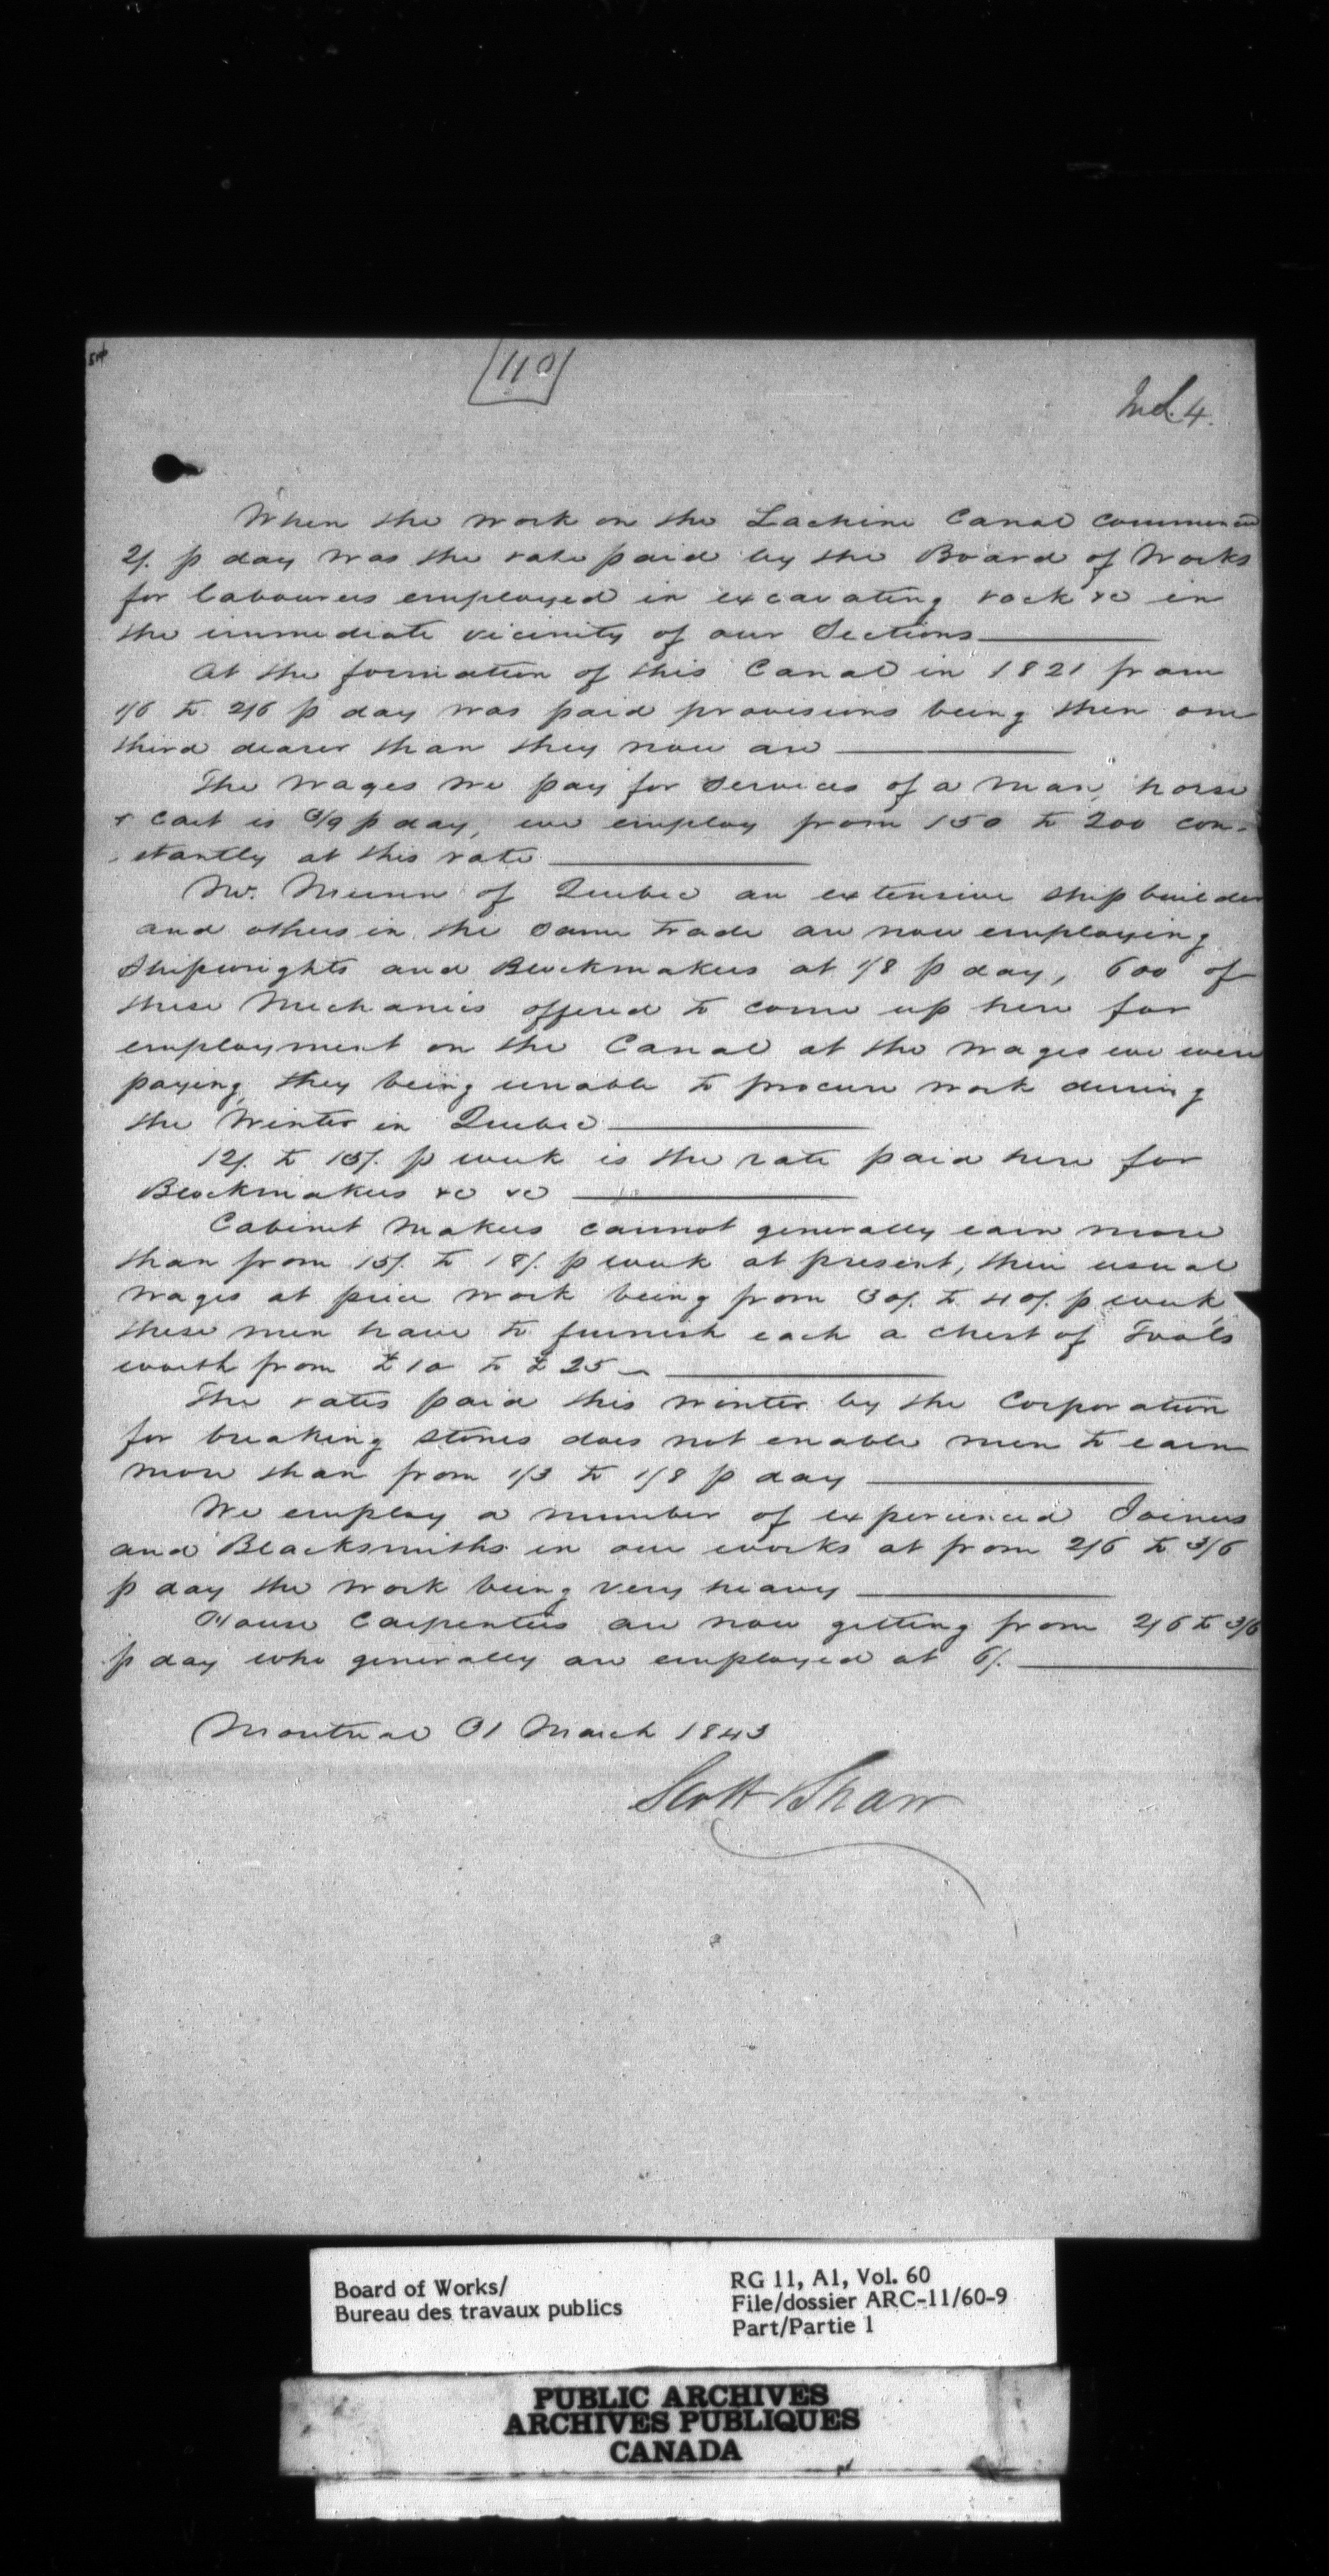 110
Incl. 4.
When the work on the Lachine Canal commenced
2/. p day was the rate paid by the Board of Works
for labourers employed in excavating rock &c in
the immediate vicinity of our Sections
At the formation of this Canal in 1821 from
1/6 to 2/6 p day was paid provisions being then one
third dearer than they now are
The wages we pay for services of a man, horse
& Cart is 3/9 p day, we employ from 150 to 200 con-
stantly at this rate
Mr. Munn of Quebec an extensive ship builder
and others in the same trade are now employing
Shipwrights and Blockmakers at 1/8 p day, 600 of
these Mechanics offered to come up here for
employment on the Canal at the wages we were
paying, they being unable to procure work during
the Winter in Quebec
12/. to 15/. p week is the rate paid here for
Blockmakers &c &c
Cabinet Makers cannot generally earn more
than from 15/. to 18/. p week at present, their usual
wages at piece work being from 30/. to 40/. p week,
these men have to furnish each a chest of Tools
worth from £10 to £25
The rates paid this winter by the Corporation
for breaking stones does not enable men to earn
more than from 1/3 to 1/8 p day
We employ a number of experienced Joiners
and Blacksmiths in our works at from 2/6 to 3/6
p day the work being very heavy
House Carpenters are now getting from 2/6 to 3/6
p day who generally are employed at 6/.
Montreal 31 March 1843
Scott Shaw
Board of Works/
Bureau des travaux publics
RG 11, A1, Vol. 60
File/dossier ARC-11/60-9
Part/Partie 1
PUBLIC ARCHIVES
ARCHIVES PUBLIQUES
CANADA